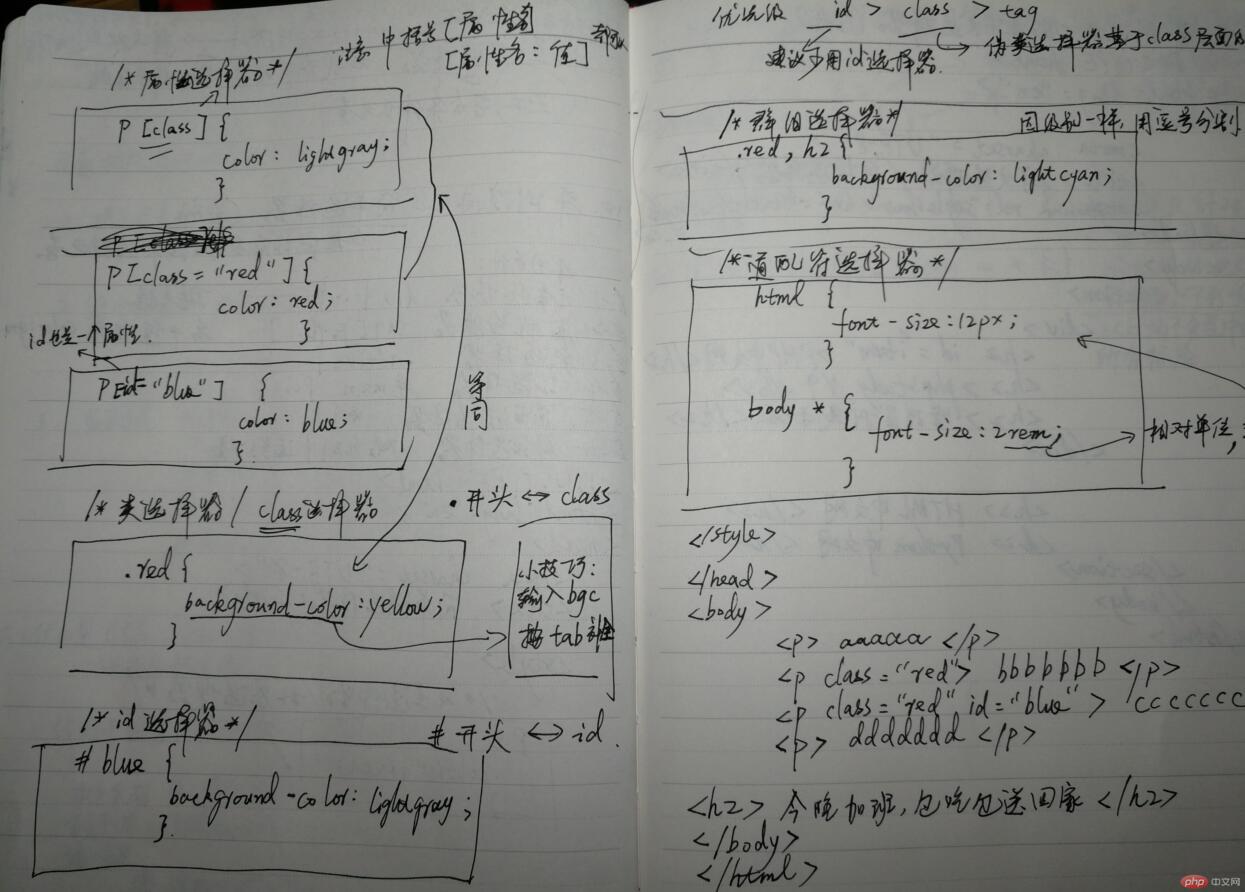 注意 中括号[属性名]
[属性名：值]
/* 属性选择器 */
p [class] {
color: lightgray;
}
p [class = "red"] {
color: red;
}
id也是一个属性.
p [id= "blue"] {
color: blue;
}
等同
/* 类选择器 / class选择器
.开头 ↔ class
.red {
background-color: yellow;
}
小技巧:
输入bgc
按tab补全
/* id选择器 */
#开头 ↔ id.
# blue {
background-color: lightgray;
}
优先级 id > class > tag
建议少用id选择器.
伪类选择器基于class层面的
/* 群组选择器 */
因级别一样, 用逗号分割
.red, h2 {
background-color: lightcyan;
}
/* 通配符选择器 */
html {
font-size: 12px;
}
body * {
font-size: 2rem;
}
相对单位,
</style>
</head>
<body>
<p> aaaaaa </p>
<p class="red"> bbbbbbb </p>
<p class="red" id="blue"> ccccccc
<p> ddddddd </p>
<h2> 今晚加班, 包吃包送回家 </h2>
</body>
</html>
php 中文网